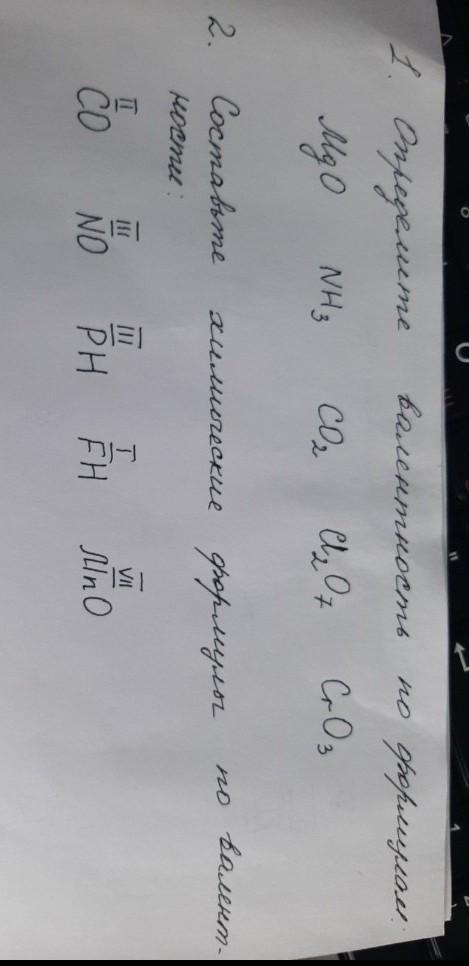 1. Определите валентность по формулам:
MgO NH₃ CO₂ Cl₂O₇ CrO₃
2. Составьте химические формулы по валент-
ности:
II III III I VII
CO NO PH FH MnO